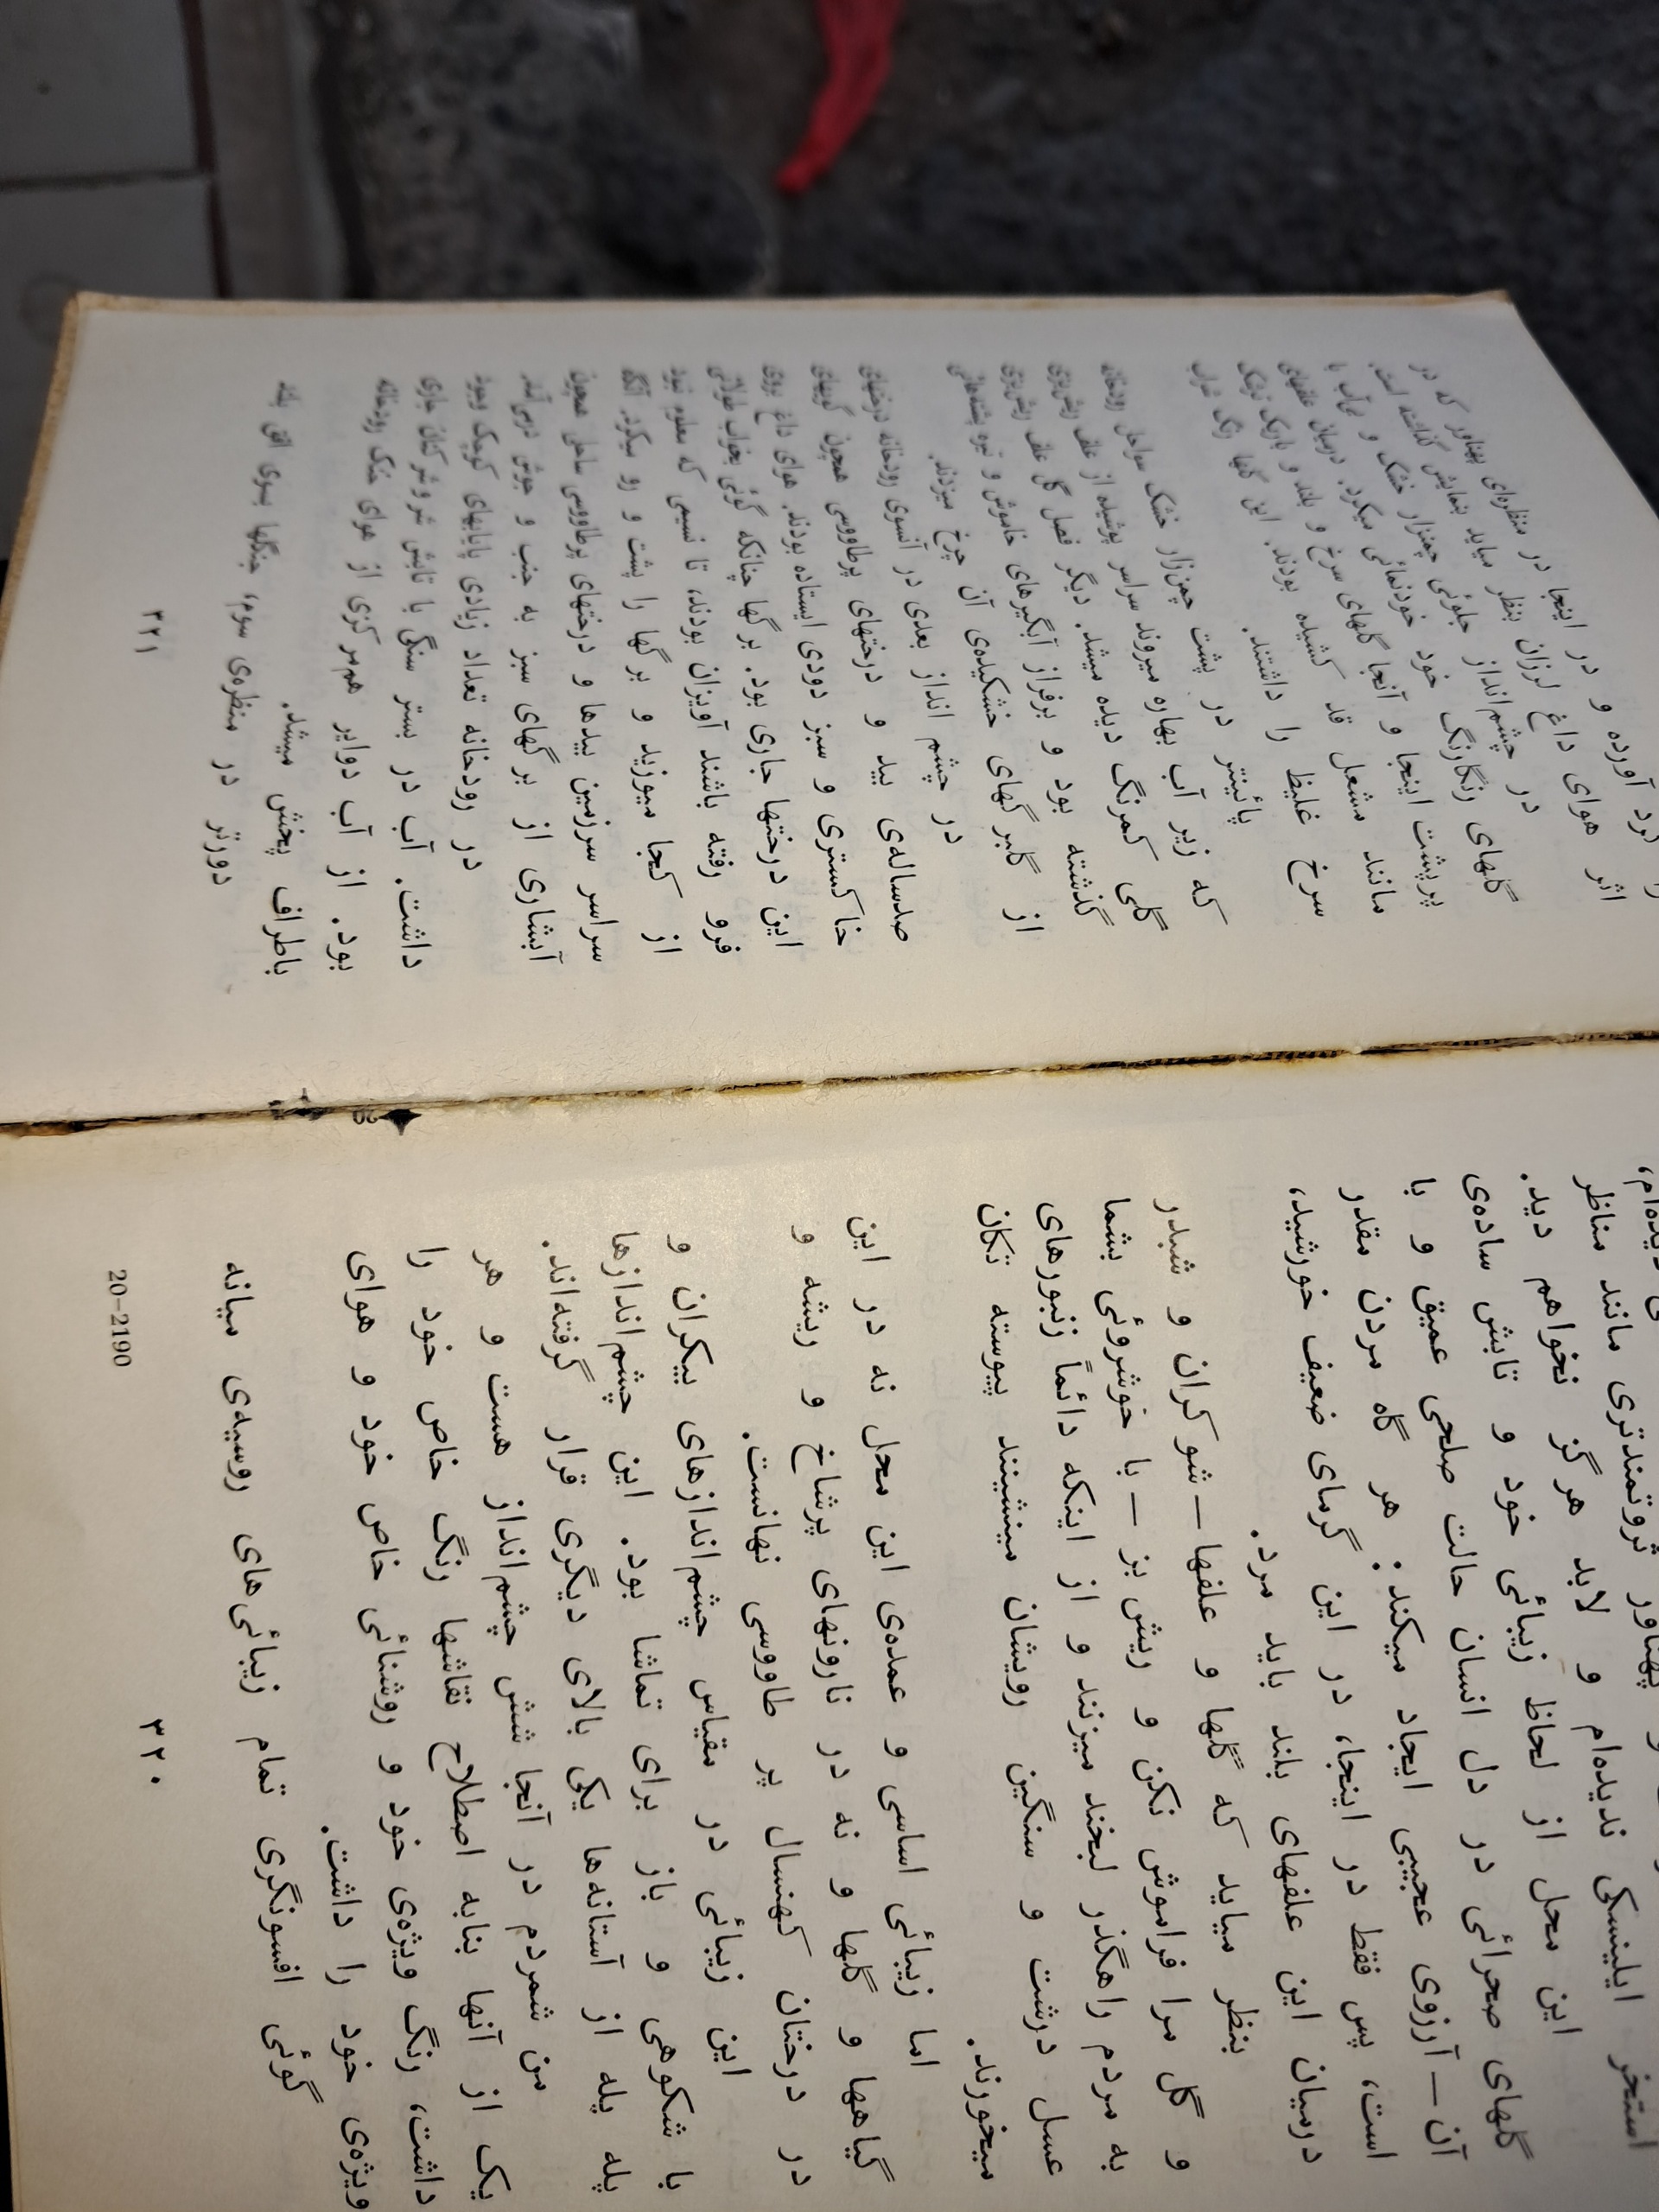 استخر ایلینسکی ندیده‌ام و لابد هرگز نخواهم دید.
این محل از لحاظ زیبائی خود و تابش ساده‌ی
گلهای صحرائی در دل انسان حالت صلحی عمیق و با
آن — آرزوی عجیبی ایجاد میکند. هر گاه مردن مقدر
است، پس فقط در اینجا، در این گرمای ضعیف خورشید،
درمیان این علفهای بلند باید مرد.
بنظر میاید که گلها و علفها — شوکران و شبدر
و گل مرا فراموش نکن و ریش بز — با خوشروئی بشما
به مردم راهگذر لبخند میزنند و از اینکه دائماً زنبورهای
عسل درشت و سنگین رویشان مینشینند پیوسته تکان
میخورند.
اما زیبائی اساسی و عمده‌ی این محل نه در این
گیاهها و گلها و نه در نارونهای پرشاخ و ریشه و
در درختان کهنسال پر طاووسی نهانست.
این زیبائی در مقیاس چشم‌اندازهای بیکران و
با شکوهی و باز برای تماشا بود. این چشم‌اندازها
پله پله از آستانه‌ها یکی بالای دیگری قرار گرفته‌اند.
من شمردم در آنجا شش چشم‌انداز هست و هر
یک از آنها بنابه اصطلاح نقاشها رنگ خاص خود را
داشت، رنگ ویژه‌ی خود و روشنائی خاص خود و هوای
ویژه‌ی خود را داشت.
گوئی افسونگری تمام زیبائی‌های روسیه‌ی میانه
۳۲۰
20–2190
گرد آورده و در اینجا در منظره‌ای پهناور که در
اثر هوای داغ لرزان بنظر میاید بنمایش گذاشته است.
در چشم‌انداز جلوئی چمنزار خشک و بی‌آب با
گلهای رنگارنگ خود خودنمائی میکرد. درمیان علفهای
پرپشت اینجا و آنجا گلهای سرخ و بلند و باریک
مانند مشعل قد کشیده بودند. این گلها رنگ شراب
سرخ غلیظ را داشتند.
پائینتر در پشت چمن‌زار خشک سواحل رودخانه
که زیر آب بهاره میروند سراسر پوشیده از علف ریش‌بزی
گلی کمرنگ دیده میشد. دیگر فصل گل علف ریش‌بزی
گذشته بود و برفراز آبگیرهای خاموش و تیره پشته‌هائی
از گلبرگهای خشکیده‌ی آن چرخ میزدند.
در چشم انداز بعدی در آنسوی رودخانه درختهای
صدساله‌ی بید و درختهای پرطاووسی همچون گویهای
خاکستری و سبز دودی ایستاده بودند. هوای داغ بروی
این درختها جاری بود. برگها چنانکه گوئی بخواب طولانی
فرو رفته باشند آویزان بودند، تا نسیمی که معلوم نبود
از کجا میوزید و برگها را پشت و رو میکرد. آنگاه
سراسر سرزمین بیدها و درختهای پرطاووسی ساحلی همچون
آبشاری از برگهای سبز به جنب و جوش درمی‌آمد.
در رودخانه تعداد زیادی پایابهای کوچک وجود
داشت. آب در بستر سنگی با تابش شروشر کنان جاری
بود. از آب دوایر هم‌مرکزی از هوای خنک رودخانه
باطراف پخش میشد.
دورتر در منظره‌ی سوم، جنگلها بسوی افق بلند
۳۲۱